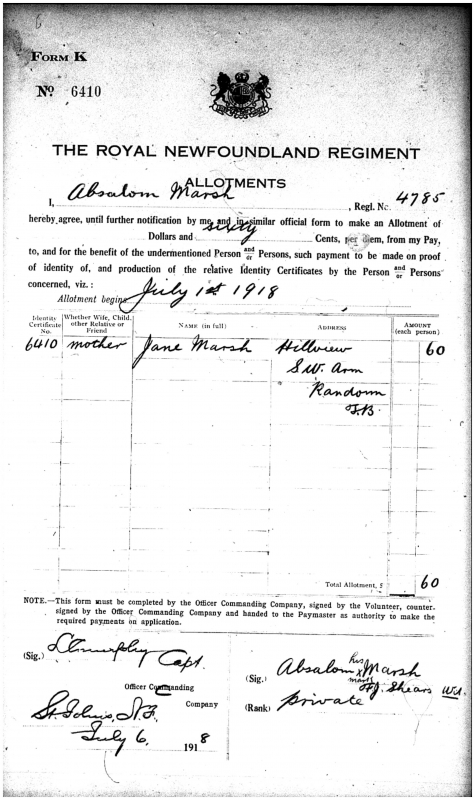 6
FORM K
Nº 6410
THE ROYAL NEWFOUNDLAND REGIMENT
ALLOTMENTS
I, Absalom Marsh, Regl. No. 4785
hereby agree, until further notification by me, and in similar official form to make an Allotment of
sixty
Dollars and Cents, per diem, from my Pay,
to, and for the benefit of the undermentioned Person and/or Persons, such payment to be made on proof
of identity of, and production of the relative Identity Certificates by the Person and/or Persons
concerned, viz.:
Allotment begins July 1st 1918
Identity Certificate No. Whether Wife, Child, other Relative or Friend NAME (in full) ADDRESS AMOUNT (each person)
6410 mother Jane Marsh Hillview 60
S.W. Arm
Random
T.B.
Total Allotment, $ 60
NOTE.—This form must be completed by the Officer Commanding Company, signed by the Volunteer, counter-
signed by the Officer Commanding Company and handed to the Paymaster as authority to make the
required payments on application.
(Sig.) Murphy Capt.
Officer Commanding
Company
St. John's, N.F.
July 6, 1918
(Sig.) Absalom his x mark Marsh
F.J. Shears
(Rank) private